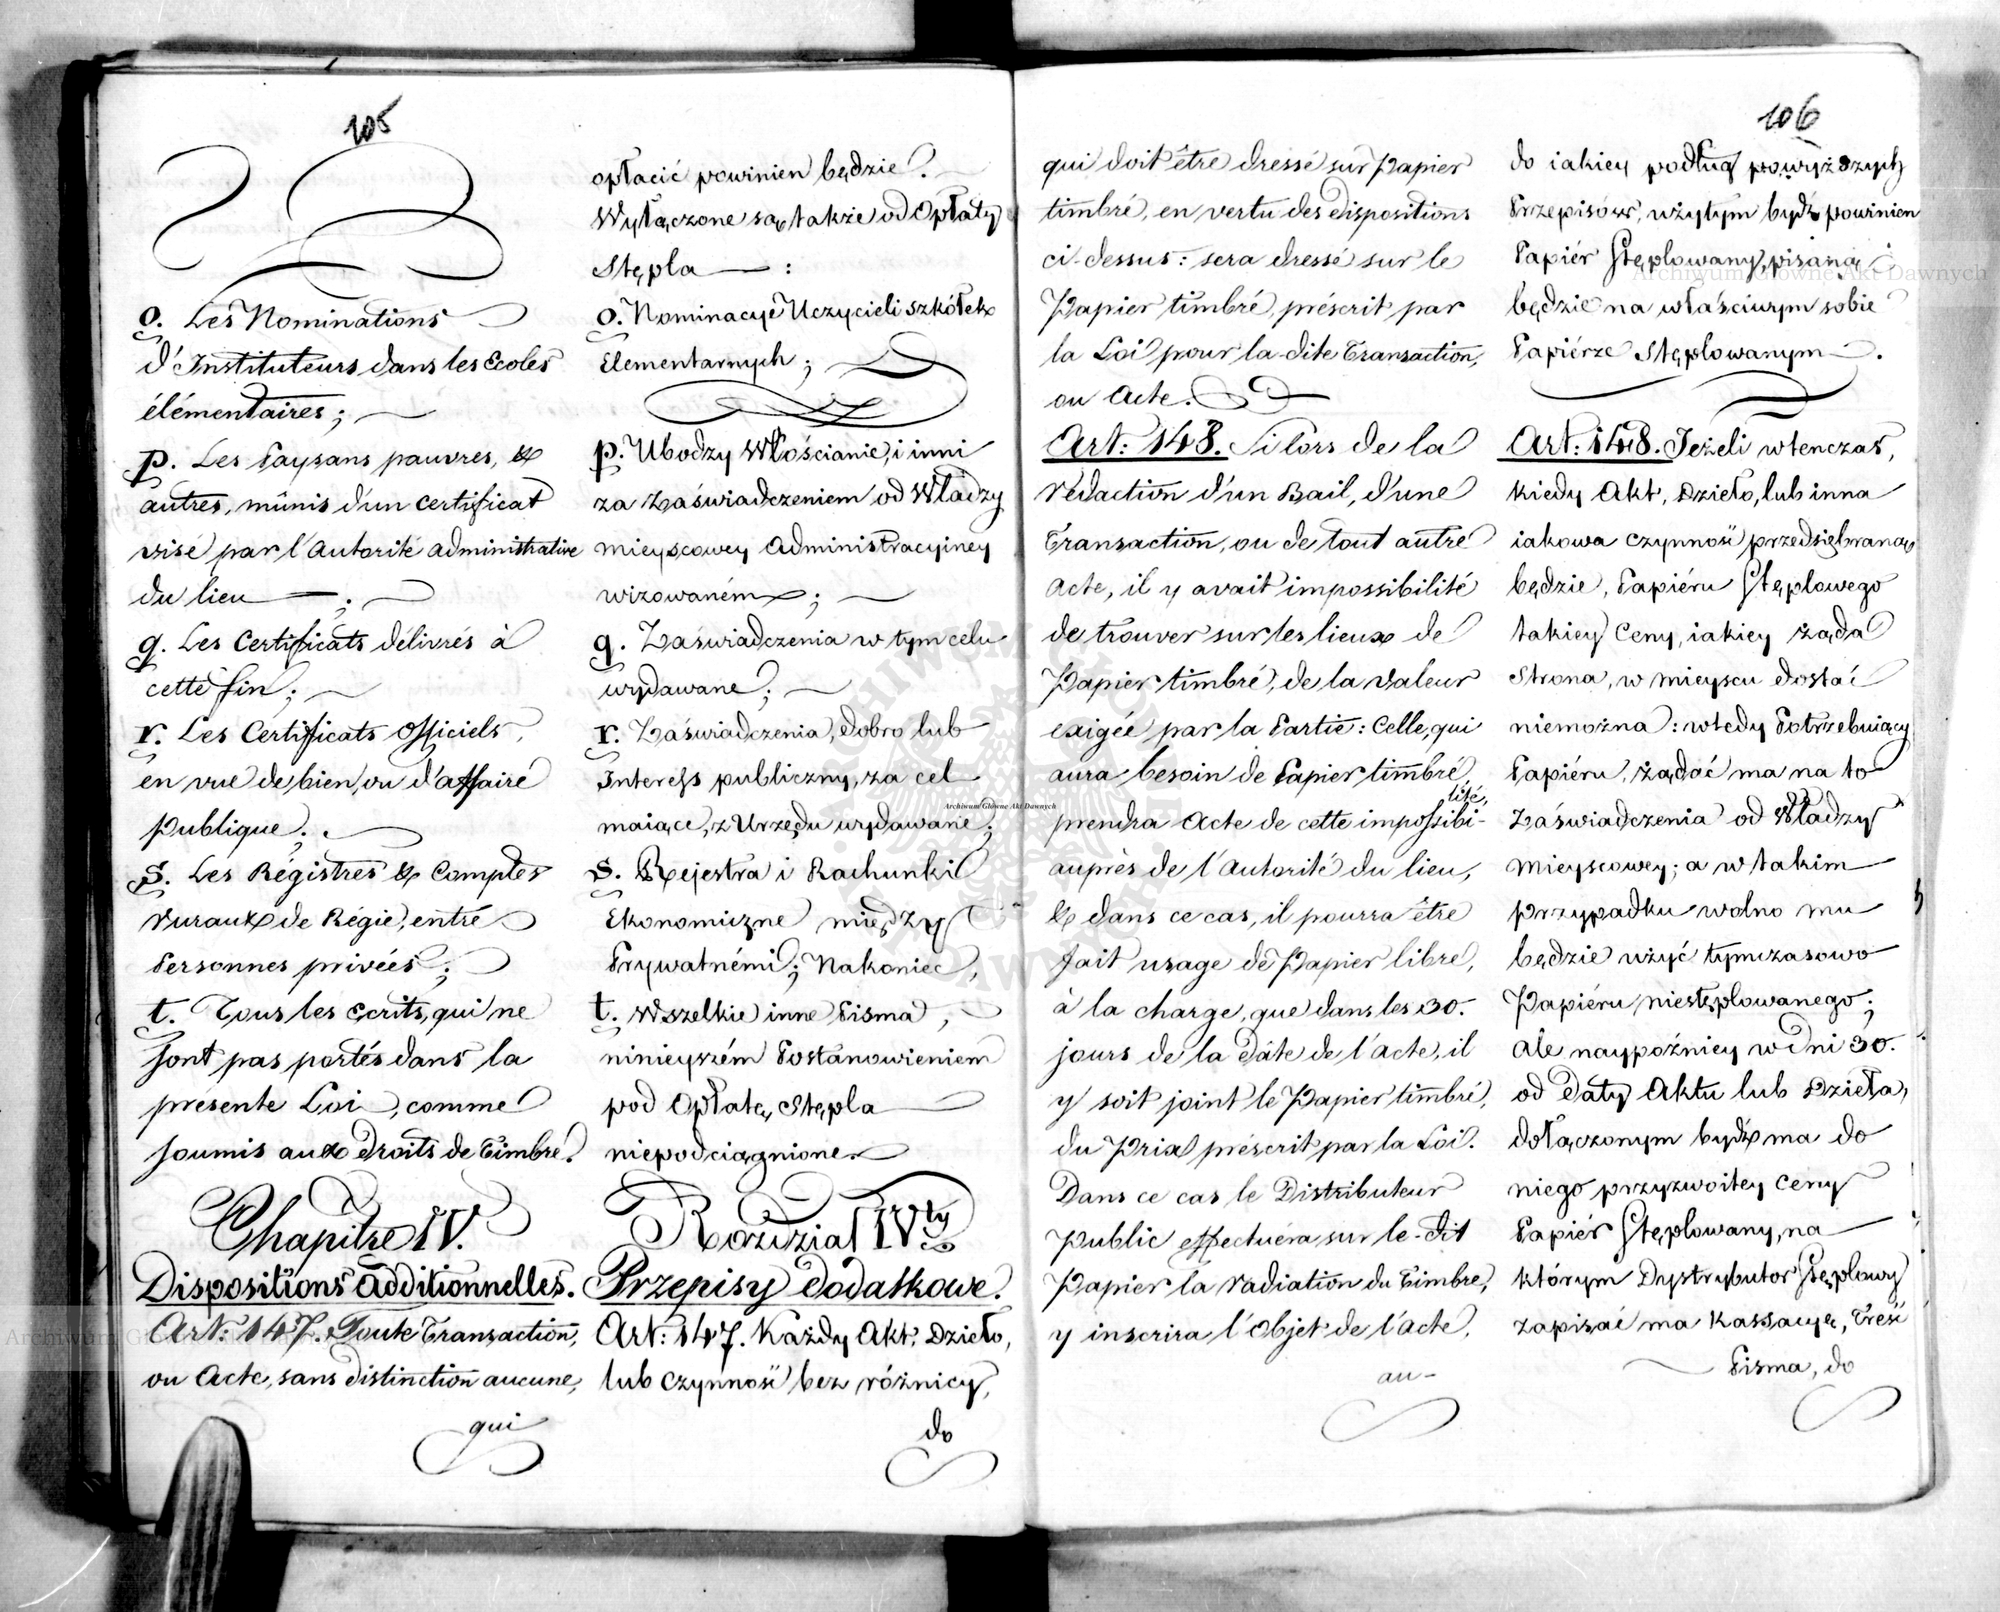 105
o. Les Nominations
d'Instituteurs dans les Ecoles
élémentaires;
p. Les Paysans pauvres, &
autres, munis d'un certificat
visé par l'Autorité administrative
du lieu ;
q. Les Certificats délivrés à
cette fin;
r. Les Certificats officiels,
en vue de bien, ou d'affaire
publique;
s. Les Régistres & Comptes
ruraux de Régie, entre
Personnes privées;
t. Tous les écrits, qui ne
sont pas portés dans la
présente Loi, comme
soumis aux droits de Timbre.
Chapitre IV.
Dispositions additionnelles.
Art: 147. Toute Transaction,
ou Acte, sans distinction aucune,
qui
opłacić powinien będzie.
Wyłączone są także od Opłaty
Stępla :
o. Nominacye Uczycieli szkółek
Elementarnych;
p. Ubodzy Włościanie, i inni
za Zaświadczeniem od Władzy
mieyscowey Administracyiney
wizowaném;
q. Zaświadczenia w tym celu
wydawane;
r. Zaświadczenia, dobro lub
Interess publiczny, za cel
maiące, z Urzędu wydawane;
s. Rejestra i Rachunki
Ekonomiczne między
Prywatnémi; Nakoniec,
t. Wszelkie inne Pisma,
ninieyszém Postanowieniem
pod Opłatę Stępla
niepodciągnione.
Rozdział IVty
Przepisy dodatkowe.
Art: 147. Każdy Akt, Dzieło,
lub czynność bez różnicy,
do
106
qui doit être dressé sur Papier
timbré, en vertu des dispositions
ci-dessus: sera dressé sur le
Papier timbré, préscrit par
la Loi pour la-dite Transaction,
ou Acte.
Art: 148. Si lors de la
rédaction d'un Bail, d'une
Transaction, ou de tout autre
Acte, il y avait impossibilité
de trouver sur les lieux de
Papier timbré, de la valeur
exigée par la Partie: Celle, qui
aura besoin de Papier timbré,
prendra Acte de cette impossibilité,
auprès de l'Autorité du lieu,
& dans ce cas, il pourra être
fait usage de Papier libre,
à la charge, que dans les 30.
jours de la date de l'Acte, il
y soit joint le Papier timbré,
du Prix préscrit par la Loi.
Dans ce cas le Distributeur
public effectuera sur le-dit
Papier la radiation du Timbre,
y inscrira l'Objet de l'Acte,
au-
do iakiey podług powyższych
Przepisów, użytym bydź powinien
Papiér Stęplowany, pisaną
będzie na właściwym sobie
Papiérze Stęplowanym.
Art: 148. Jeżeli wtenczas,
kiedy Akt, Dzieło, lub inna
iakowa czynność przedsiębraną
będzie, Papiéru Stęplowego
takiey Ceny, iakiey żąda
Strona, w mieyscu dostać
niemożna: wtedy Potrzebuiący
Papiéru, żądać ma na to
Zaświadczenia od Władzy
Mieyscowey; a w takim
przypadku wolno mu
będzie użyć tymczasowo
Papiéru niestęplowanego;
ale naypóźniey w dni 30.
od Daty Aktu lub Dzieła,
dołączonym bydź ma do
niego przyzwoitey Ceny
Papiér Stęplowany, na
którym Dystrybutor Stęplowy
zapisać ma Kassacyę, Treść
Pisma, do
Archiwum Główne Akt Dawnych